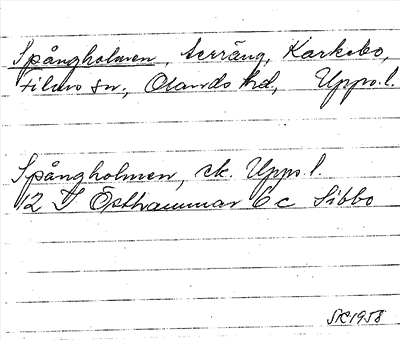 Spångholmen, terräng, Karkebo,
Films sn., Olands hd., Upps. l.
Spångholmen, ek. Upps. l.
12 I Östhammar 6 c Sibbo
SK 1958